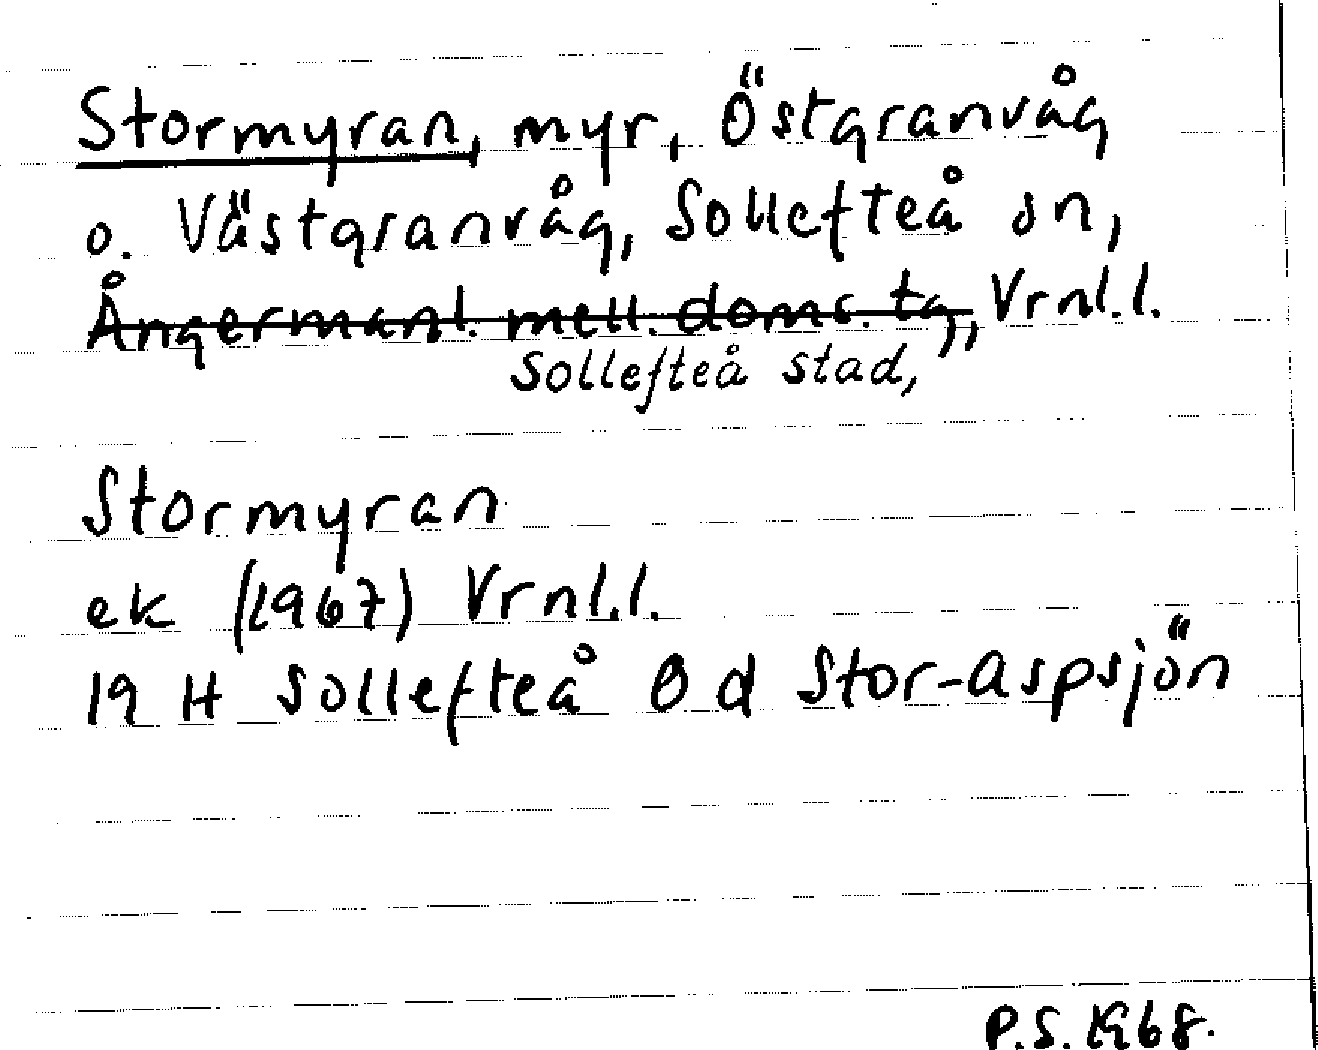 Stormyran, myr, Östgranvåg
o. Västgranvåg, Sollefteå sn,
Ångermanl. mell. doms. tg, Vrnl.l.
Sollefteå stad,
Stormyran
ek (1967) Vrnl.l.
19 H Sollefteå Ö d Stor-Aspsjön
P.S. 1968.